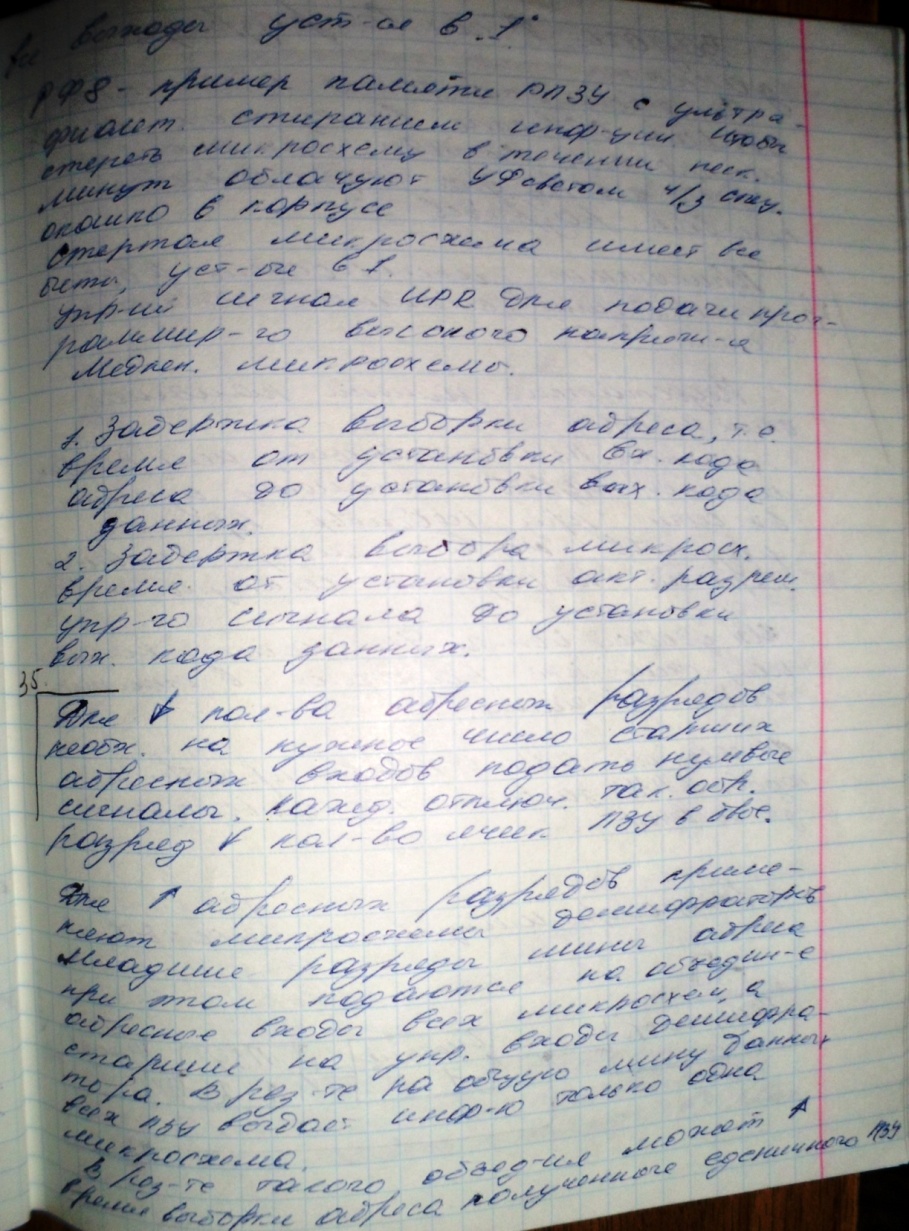 все выходы уст-ся в „1".
РФ8 - пример памяти РПЗУ с ультра-
фиолет. стиранием инф-ции. Чтобы
стереть микросхему в течении неск.
минут облачуют УФсветом ч/з спец.
окошко в корпусе
Стертая микросхема имеет все
биты, уст-ые в 1.
упр-ий сигнал UPR для подачи прог-
раммир-го высокого напряж-я
Медлен. микросхемы.
1. Задержка выборки адреса, т.е.
время от установки вх. кода
адреса до установки вых. кода
данных.
2. Задержка выбора микросх.
время от установки акт. разреш.
упр-го сигнала до установки
вых. кода данных.
35.
Для ↓ кол-ва адресных разрядов
необх. на нужное число старших
адресных входов подать нулевые
сигналы. кажд. отключ. так. обр.
разряд ↓ кол-во ячеек ПЗУ в двое.
Для ↑ адресных разрядов приме-
няют микросхемы дешифраторов
Младшие разряды шины адреса
при этом подаются на объедин-е
адресные входы всех микросхем, а
старшие на упр. входы дешифра-
тора. В рез-те на общую шину данных
всех ПЗУ выдает инф-ю только одна
микросхема.
В рез-те такого объед-ия может ↑
время выборки адреса полученного единичного ПЗУ